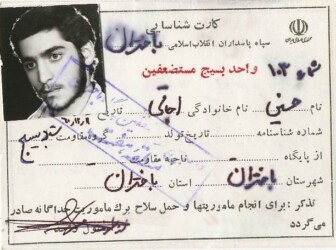 کارت شناسایی
سپاه پاسداران انقلاب اسلامی باختران
جمهوری اسلامی ایران
واحد بسیج مستضعفین
۱۰۳
نام حسین نام خانوادگی اجاقی تاریخ
شماره شناسنامه تاریخ تولد گروه مقاومت
از پایگاه ناحیه مقاومت
شهرستان باختران استان باختران
تذکر: برای انجام ماموریتها و حمل سلاح برگ ماموریت جداگانه صادر
می گردد